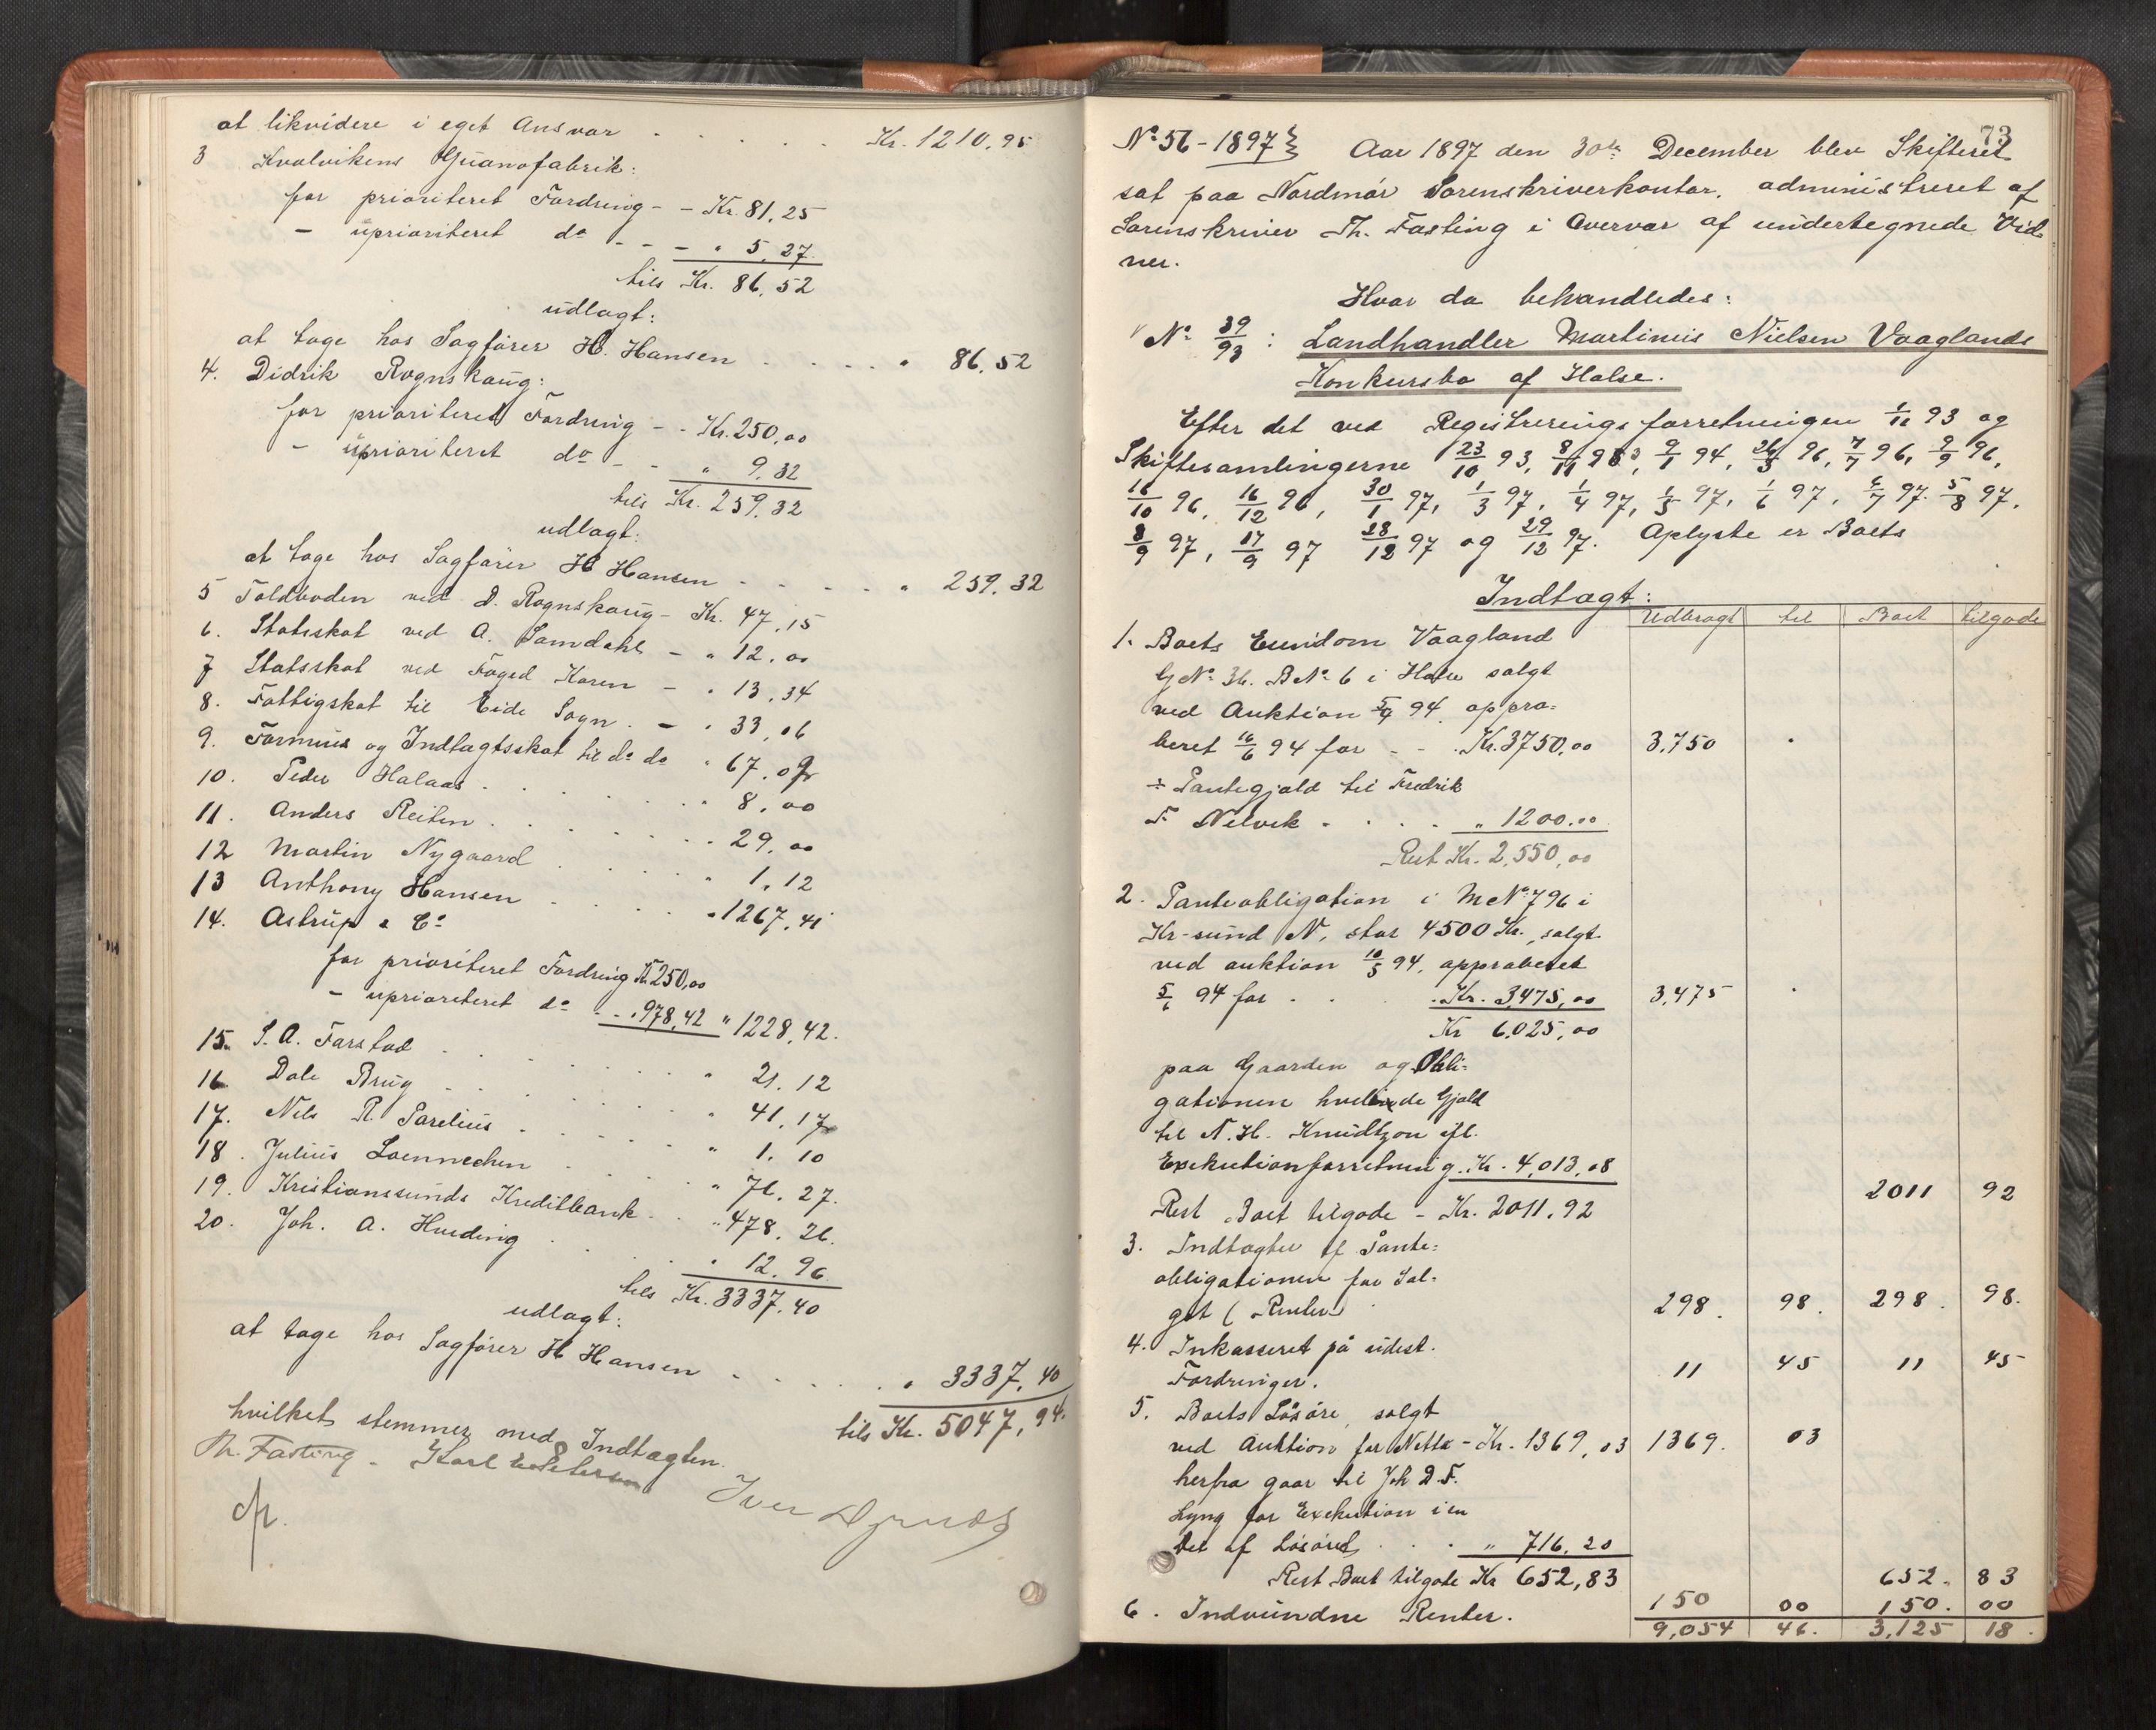 at likvidere i eget Ansvar . . . . Kr. 1210,95
3 Kvalvikens Guanofabrik:
for prioriteret Fordring - - Kr. 81,25
- uprioriteret do - - - " 5,27
tils Kr. 86,52
udlagt:
at tage hos Sagfører H. Hansen . . . . " 86,52
4. Didrik Rognskaug:
for prioriteret Fordring - - Kr. 250,00
- uprioriteret do - - " 9,32
tils Kr. 259,32
udlagt:
at tage hos Sagfører H Hansen - - - - . " 259,32
5 Toldboden ved D. Rognskaug - Kr. 47,15
6. Statsskat ved A. Samdahl - " 12,00
7 Statsskat ved Foged Koren - " 13,34
8. Fattigskat til Eide Sogn. - " 33,06
9. Formues og Indtægtsskat til do do " 67,09
10. Peder Halaas . . . . " 8,00
11. Anders Reiten . . . . " 29,00
12 Martin Nygaard . . . " 1,12
13 Anthony Hansen . . . . " 1267,41
14. Astrup & Co
for prioriteret Fordring Kr 250,00
- uprioriteret do - - " 978,42 " 1228,42.
15. S. A. Farstad . . . . " 21,12
16 Dale Brug . . . . " 41,17
17. Nils R. Parelius . . . . " 1.10
18. Julius Loennechen . . . " 71,27.
19. Kristianssunds Kreditbank . . " 478,26.
20. Joh. A. Hueding . . . " 12,96
tils Kr. 3337,40
udlagt:
at tage hos Sagfører H Hansen . . . . . " 3337,40
tils Kr. 5047,94.
hvilket stemmer med Indtægten.
Th. Fasting - Karl E. Petersen
73
No 56 - 1897 } Aar 1897 den 30te December blev Skifteret
sat paa Nordmør Sorenskriverkontor, administreret af
Sorenskriver Th. Fasting i Overvær af undertegnede Vid-
ner.
Hvor da behandledes:
No 39/93: Landhandler Martinus Nielsen Vaaglands
Konkursbo af Halse.
Efter det ved Registreringsforretningen 1/11 93 og
Skiftesamlingerne 23/10 93, 8/11 93, 9/1 94, 26/3 96, 7/7 96, 9/9 96,
16/10 96, 16/12 96, 30/1 97, 1/3 97, 1/4 97, 1/5 97, 1/6 97, 6/7 97. 5/8 97.
8/9 97, 17/9 97 28/12 97 og 29/12 97. Oplyste er Boets
Indtægt:
Udbragt til Boet tilgode
1. Boets Eiendom Vaagland
G No 36. B No 6 i Halse solgt
ved Auktion 5/4 94. appro-
beret 16/6 94 for - - . Kr. 3750,00 3,750 .
÷ Pantegjæld til Fredrik
F. Nelvik . . . . " 1200.00
Rest Kr. 2,550,00
2. Panteobligation i M No 796 i
Kr-sund N, stor 4500 Kr., solgt
ved auktion 10/5 94, approberet
5/6 94 for . . . Kr. 3475,00 3,475 .
Kr 6,025,00
paa Gaarden og Obli-
gationen hvilende Gjæld
til N. H. Knudtzon ifl.
Exekutionforretning. Kr. 4,013,08
Rest Boet tilgode - Kr. 2011,92 2011 92
3. Indtægter af Pante-
obligationen før Sal-
get (Renter) 298. 98. 298. 98.
4. Inkasseret på udest.
Fordringer. 11 45 11 45
5. Boets Løsøre, solgt
ved Auktion for Netto - Kr. 1369,03 1369. 03
herfra gaar til Joh D. F.
Lyng for Exekution i en
del af Løsøret . . . " 716,20
Rest Boet tilgode Kr 652,83 652. 83
6. Indvundne Renter. 150 00 150. 00
9,054 46. 3,125 18.